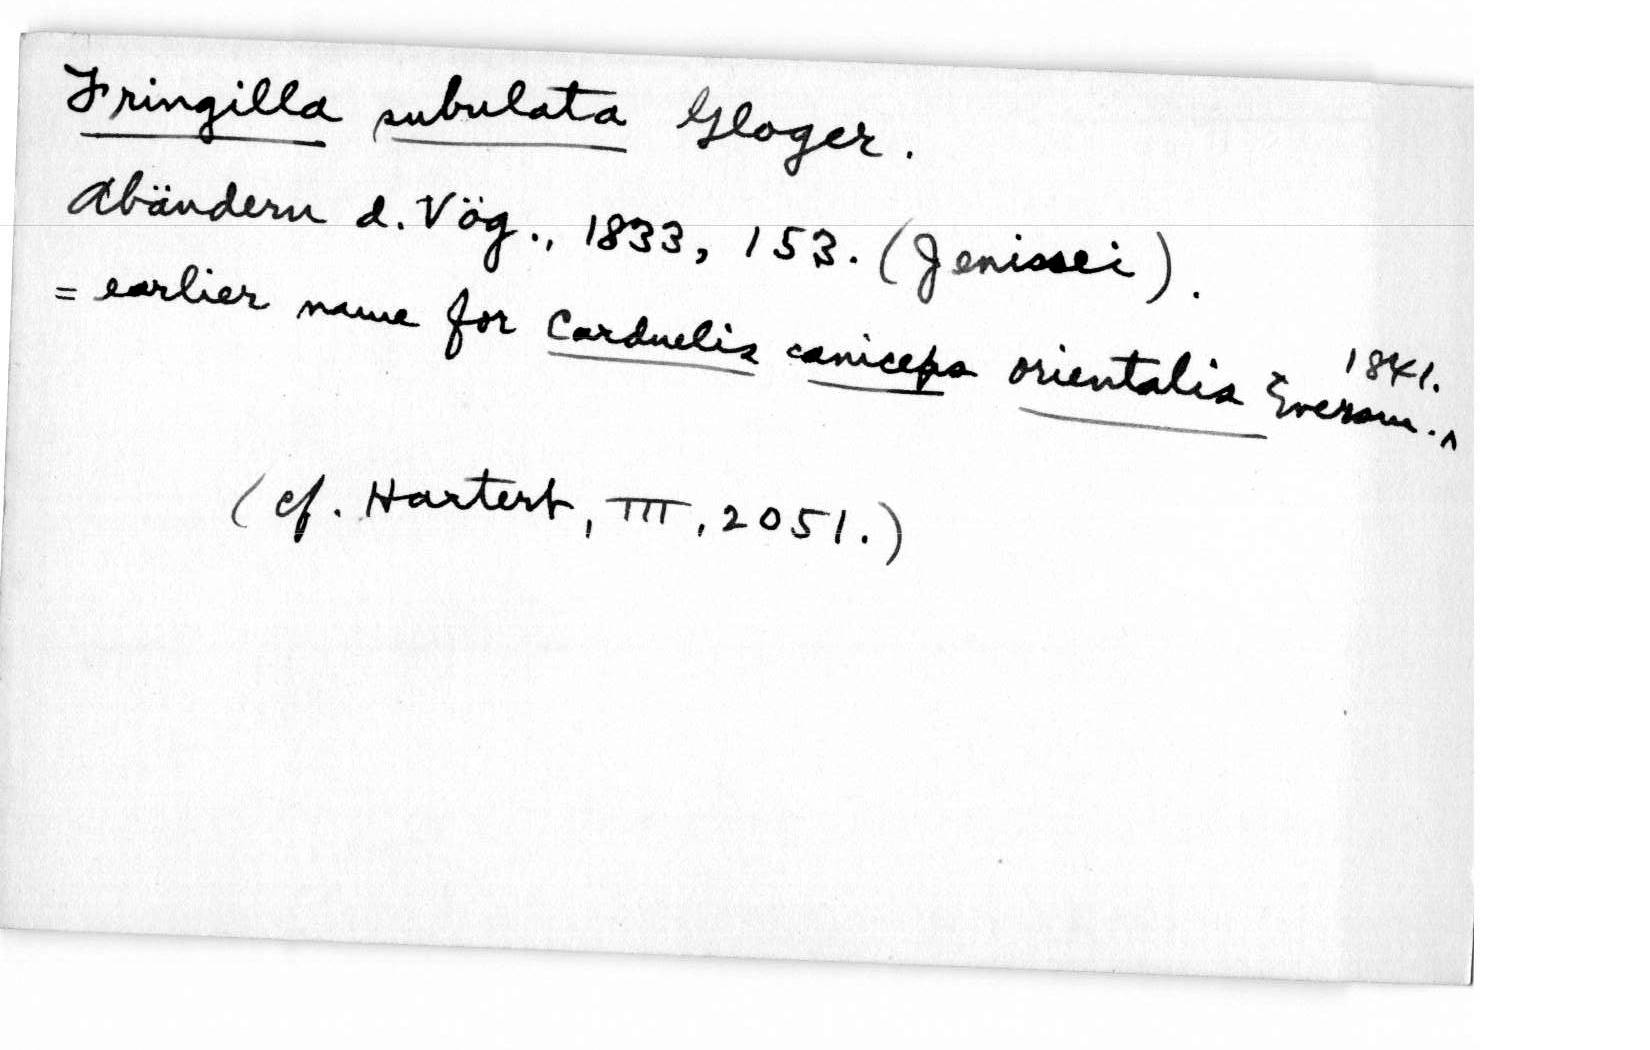 Fringilla subulata Gloger.
Abändern d. Vög., 1833, 153. (Jenissei).
= earlier name for Carduelis caniceps orientalis Eversm. ^ 1841.
(cf. Hartert, III, 2051.)